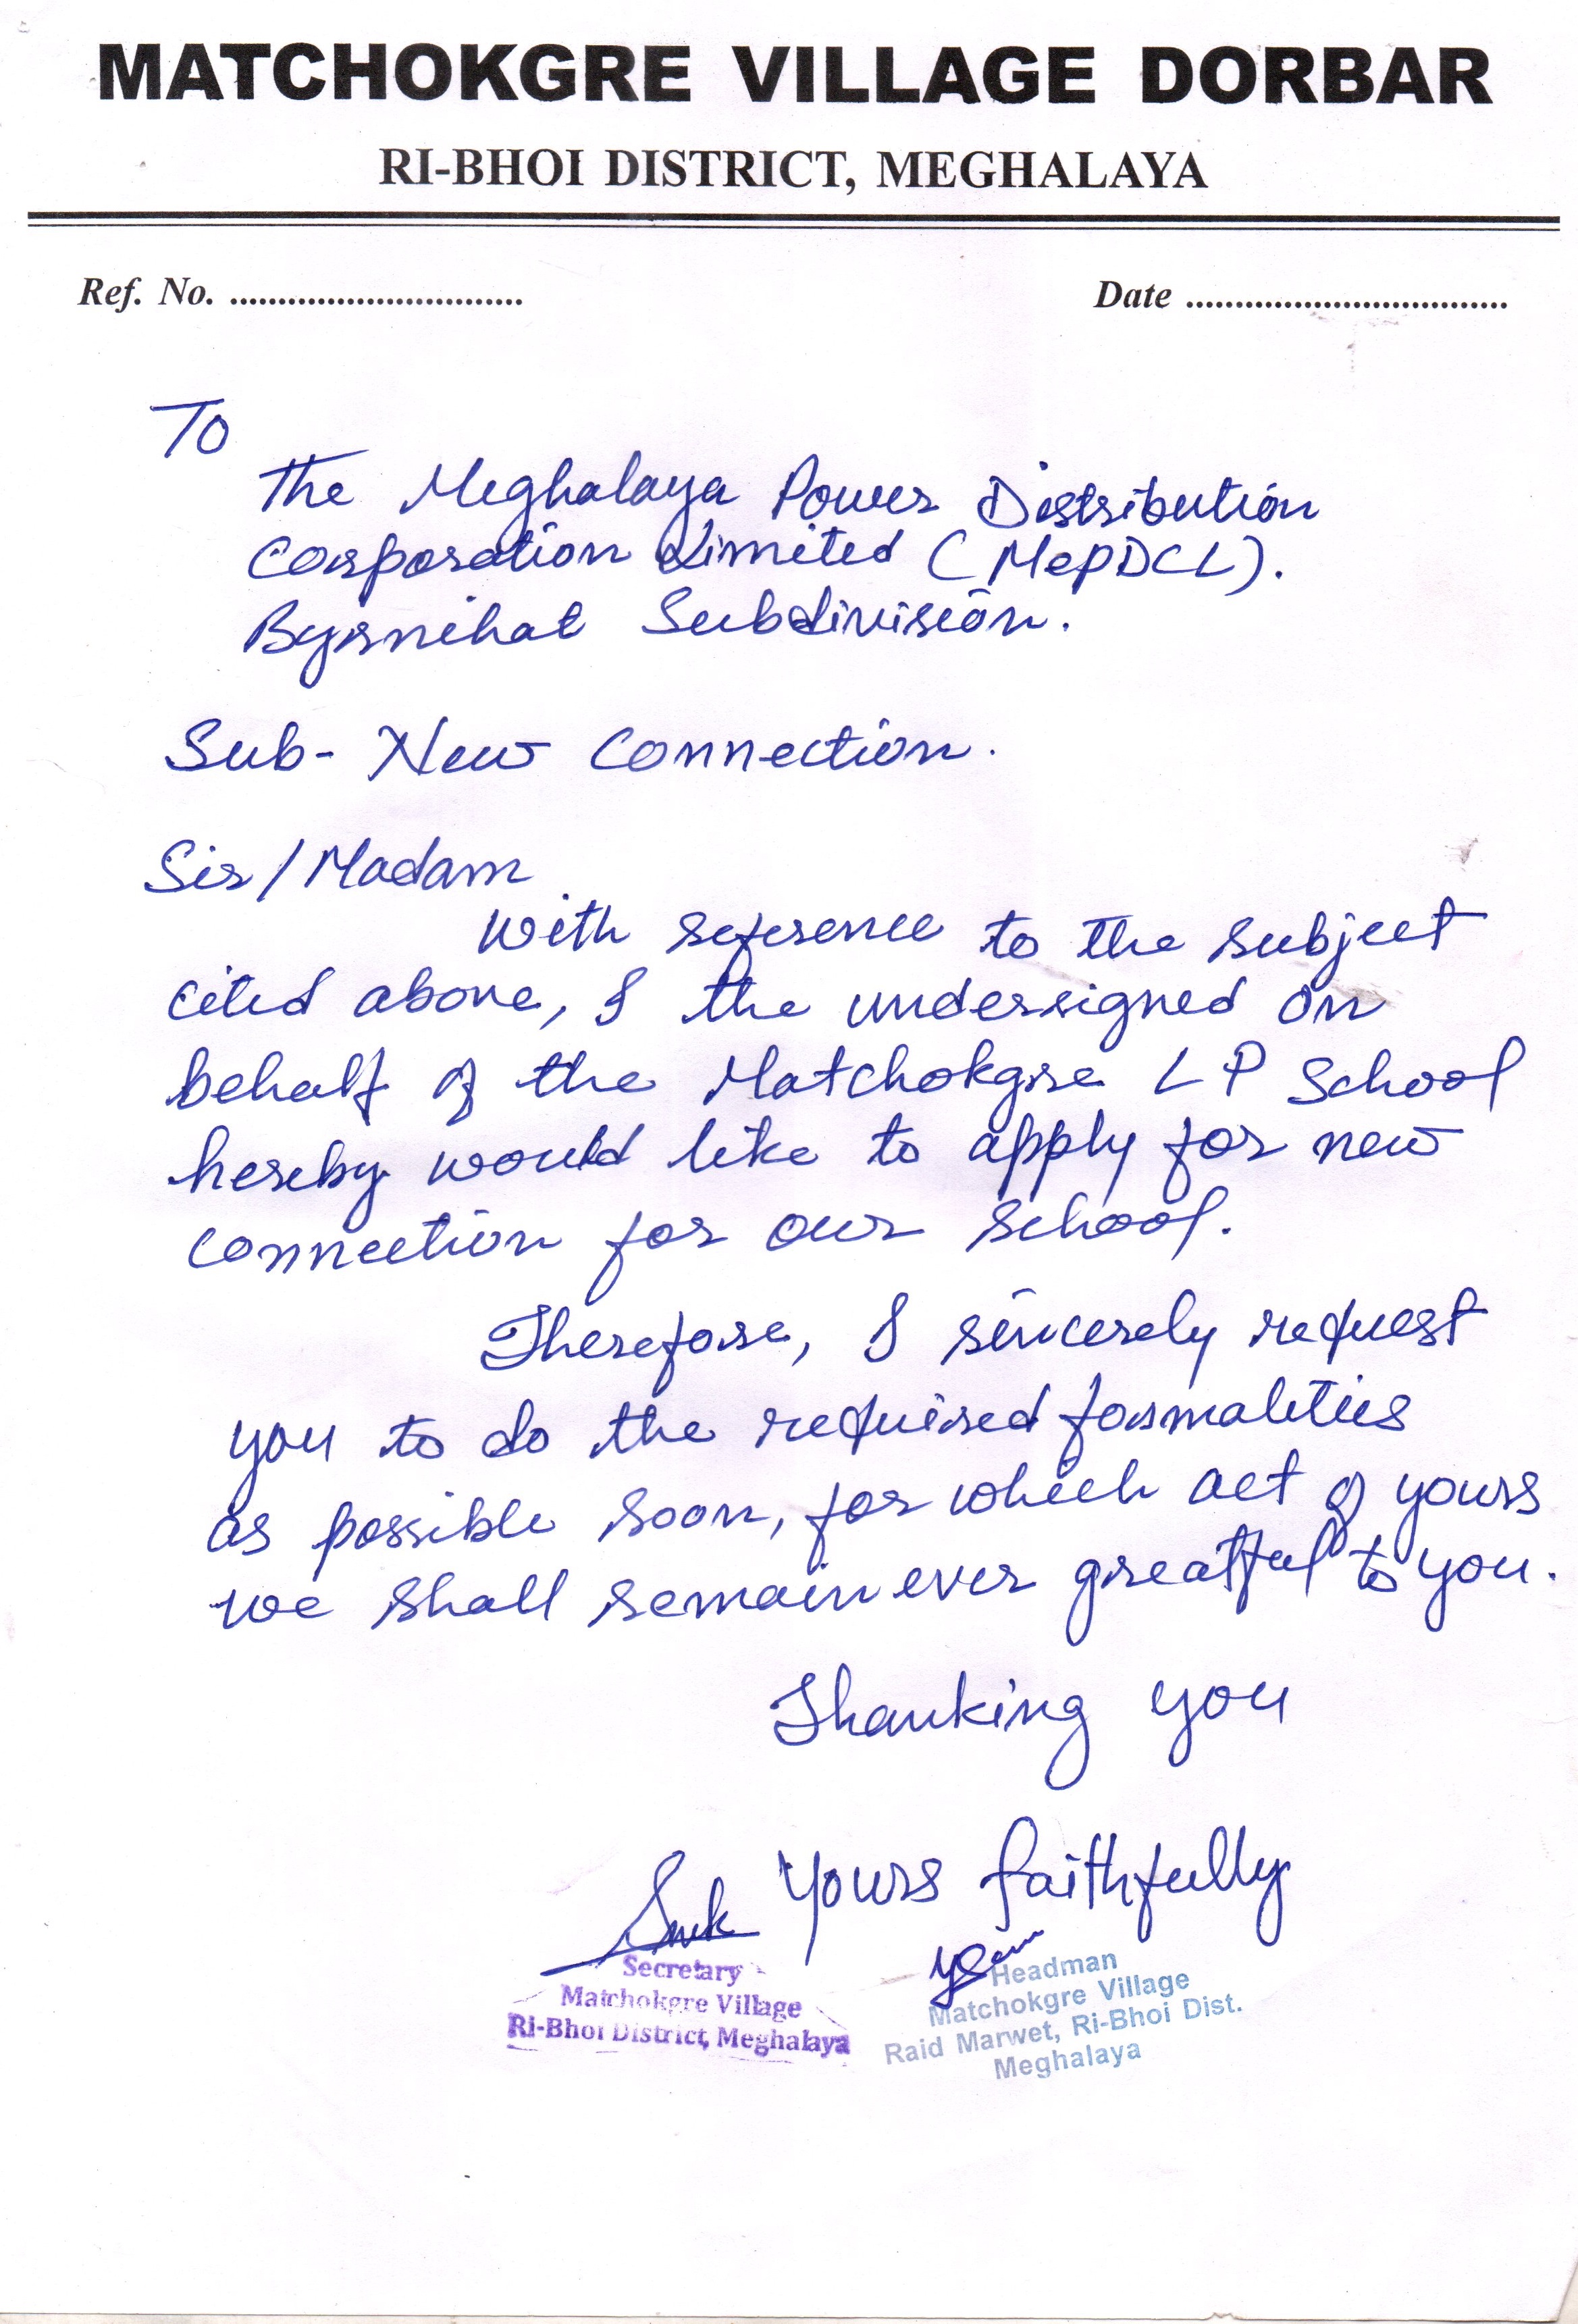 MATCHOKGRE VILLAGE DORBAR
RI-BHOI DISTRICT, MEGHALAYA
Ref. No. ..............................
Date .................................
To
The Meghalaya Power Distribution
Corporation Limited (MePDCL).
Byrnihat Subdivision.
Sub- New Connection.
Sir/Madam
With reference to the subject
cited above, I the undersigned on
behalf of the Matchokgre LP School
hereby would like to apply for new
connection for our school.
Therefore, I sincerely request
you to do the required formalities
as possible soon, for which act of yours
we shall remain ever greatful to you.
Thanking you
Yours faithfully
Secretary
Matchokgre Village
Ri-Bhoi District, Meghalaya
Headman
Matchokgre Village
Raid Marwet, Ri-Bhoi Dist.
Meghalaya